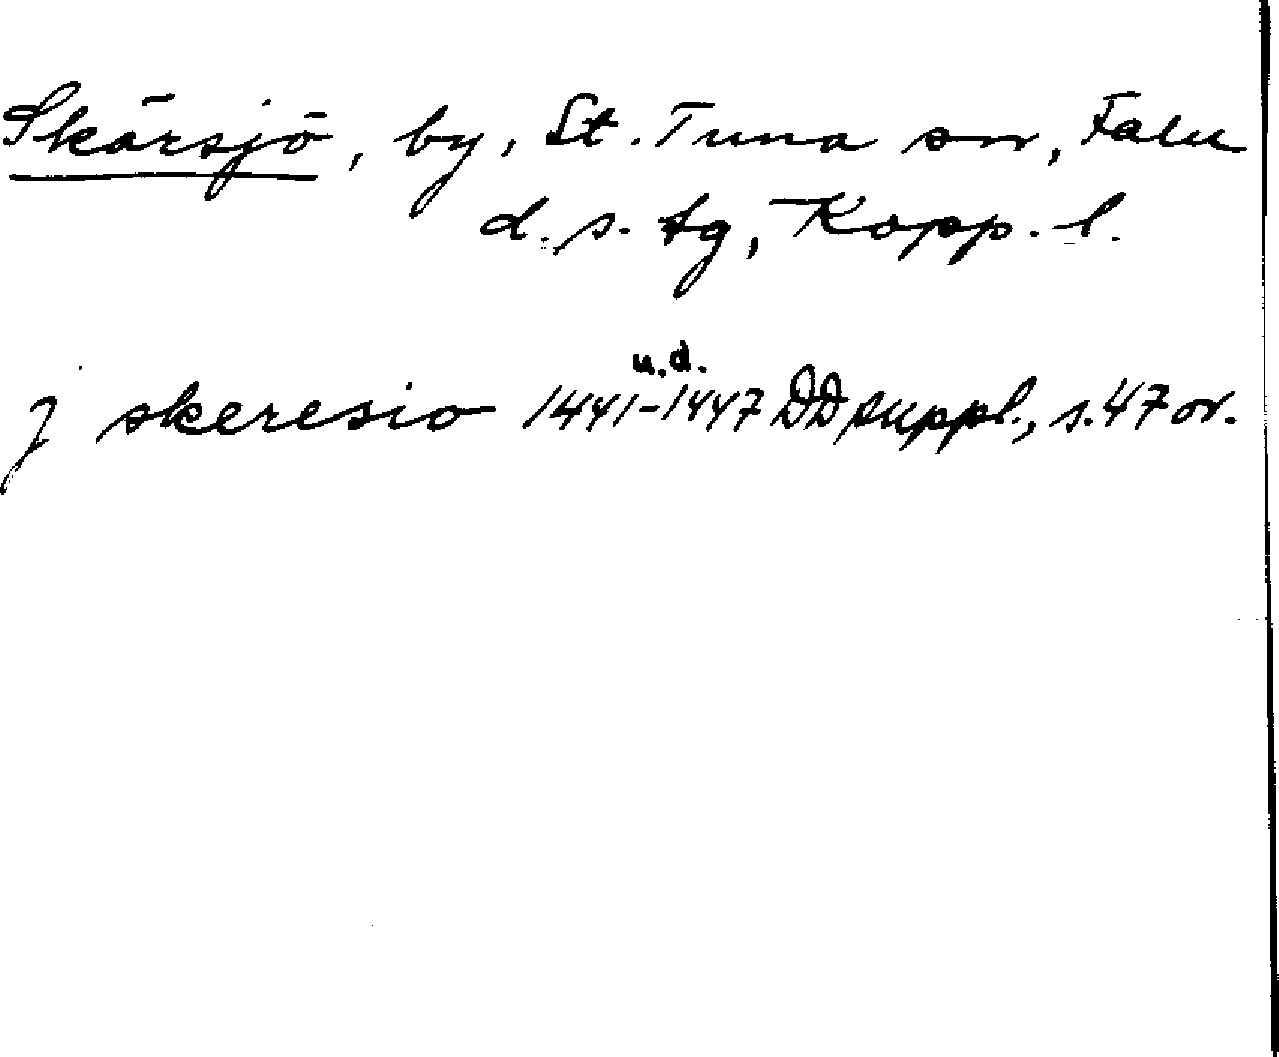 Skärsjö, by, St. Tuna sn, Falu
d.s. tg, Kopp. l.
u.d.
j skeresio 1441-1447 DD suppl., s. 47 or.